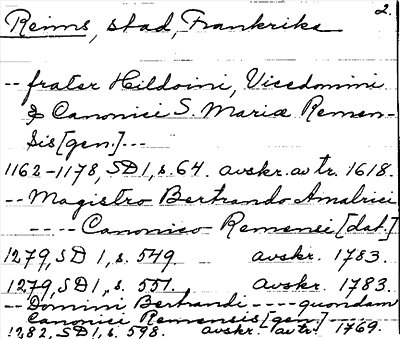 2.
Reims, stad, Frankrike
-- frater Hildoini, Vicedomini
& Canonici S. Mariæ Remen-
sis [gen.] ---
1162-1178, SD 1, s. 64. avskr. av tr. 1618.
-- Magistro Bertrando Amalrici
---- Canonico Remensi [dat.]
1279, SD 1, s. 549 avskr. 1783.
1279, SD 1, s. 551. avskr. 1783.
-- Domini Bertrandi ---- quondam
Canonici Remensis [gen.] ----
1282, SD 1, s. 598. avskr. av tr. 1769.